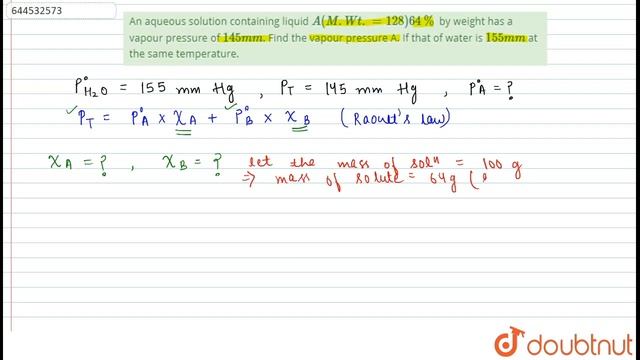 644532573
An aqueous solution containing liquid A(M. Wt. = 128)64 % by weight has a
vapour pressure of 145mm. Find the vapour pressure A. If that of water is 155mm at
the same temperature.
P°H₂O = 155 mm Hg , PT = 145 mm Hg , P°A = ?
✓ PT = P°A × χA + P°B × χB (Raoult's law)
χA = ? , χB = ? let the mass of solⁿ = 100 g
⇒ mass of solute = 64g (
doubtnut